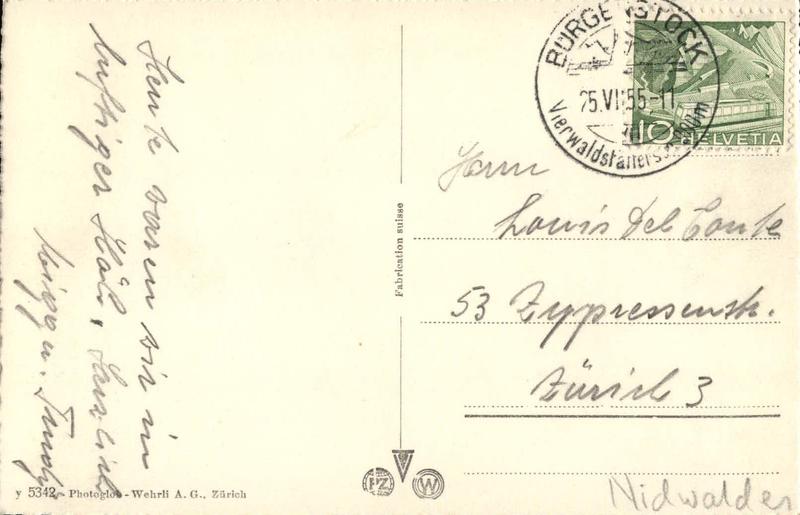 Heute waren wir in
luftiger Höh, Herzlich
u. Trudy
y 5342 - Photoglob - Wehrli A. G., Zürich
Fabrication suisse
PZ
W
BÜRGENSTOCK
25.VI.55-11
Vierwaldstättersee
10 HELVETIA
Herrn
Louis Del Conte
53 Zypressenstr.
Zürich 3
Nidwalden